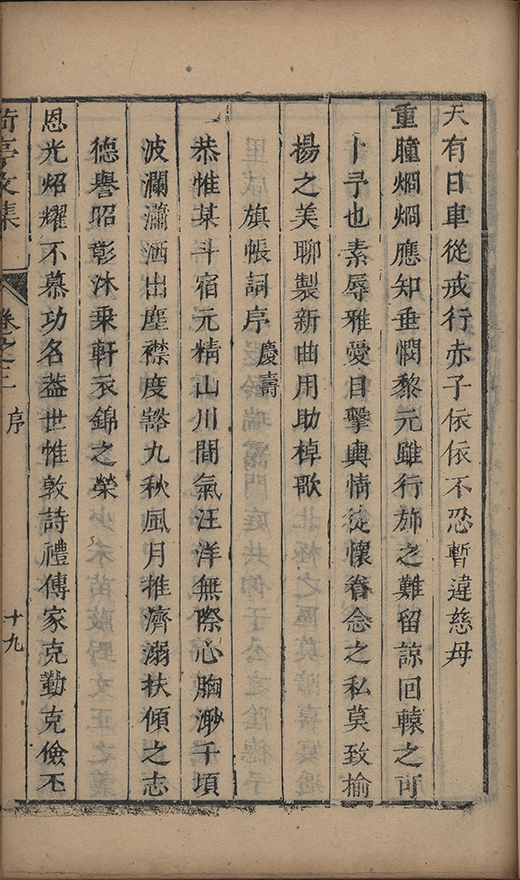 天有日車從戒行赤子依依不恐暫違慈母
重瞳烱烱應知垂憫黎元雖行斾之難留諒回轅之可
卜予也素辱雅愛目擊輿情徒懷眷念之私莫致揄
揚之美聊製新曲用助棹歌
旗帳詞序 慶壽
恭惟某斗宿元精山川間氣汪洋無際心胸渺千頃
波瀾瀟洒出塵襟度豁九秋風月推濟溺扶傾之志
德譽昭彰沐乗軒衣錦之榮
恩光炤耀不慕功名葢世惟敦詩禮傳家克勤克儉不
亭文集
卷之三
序
十九